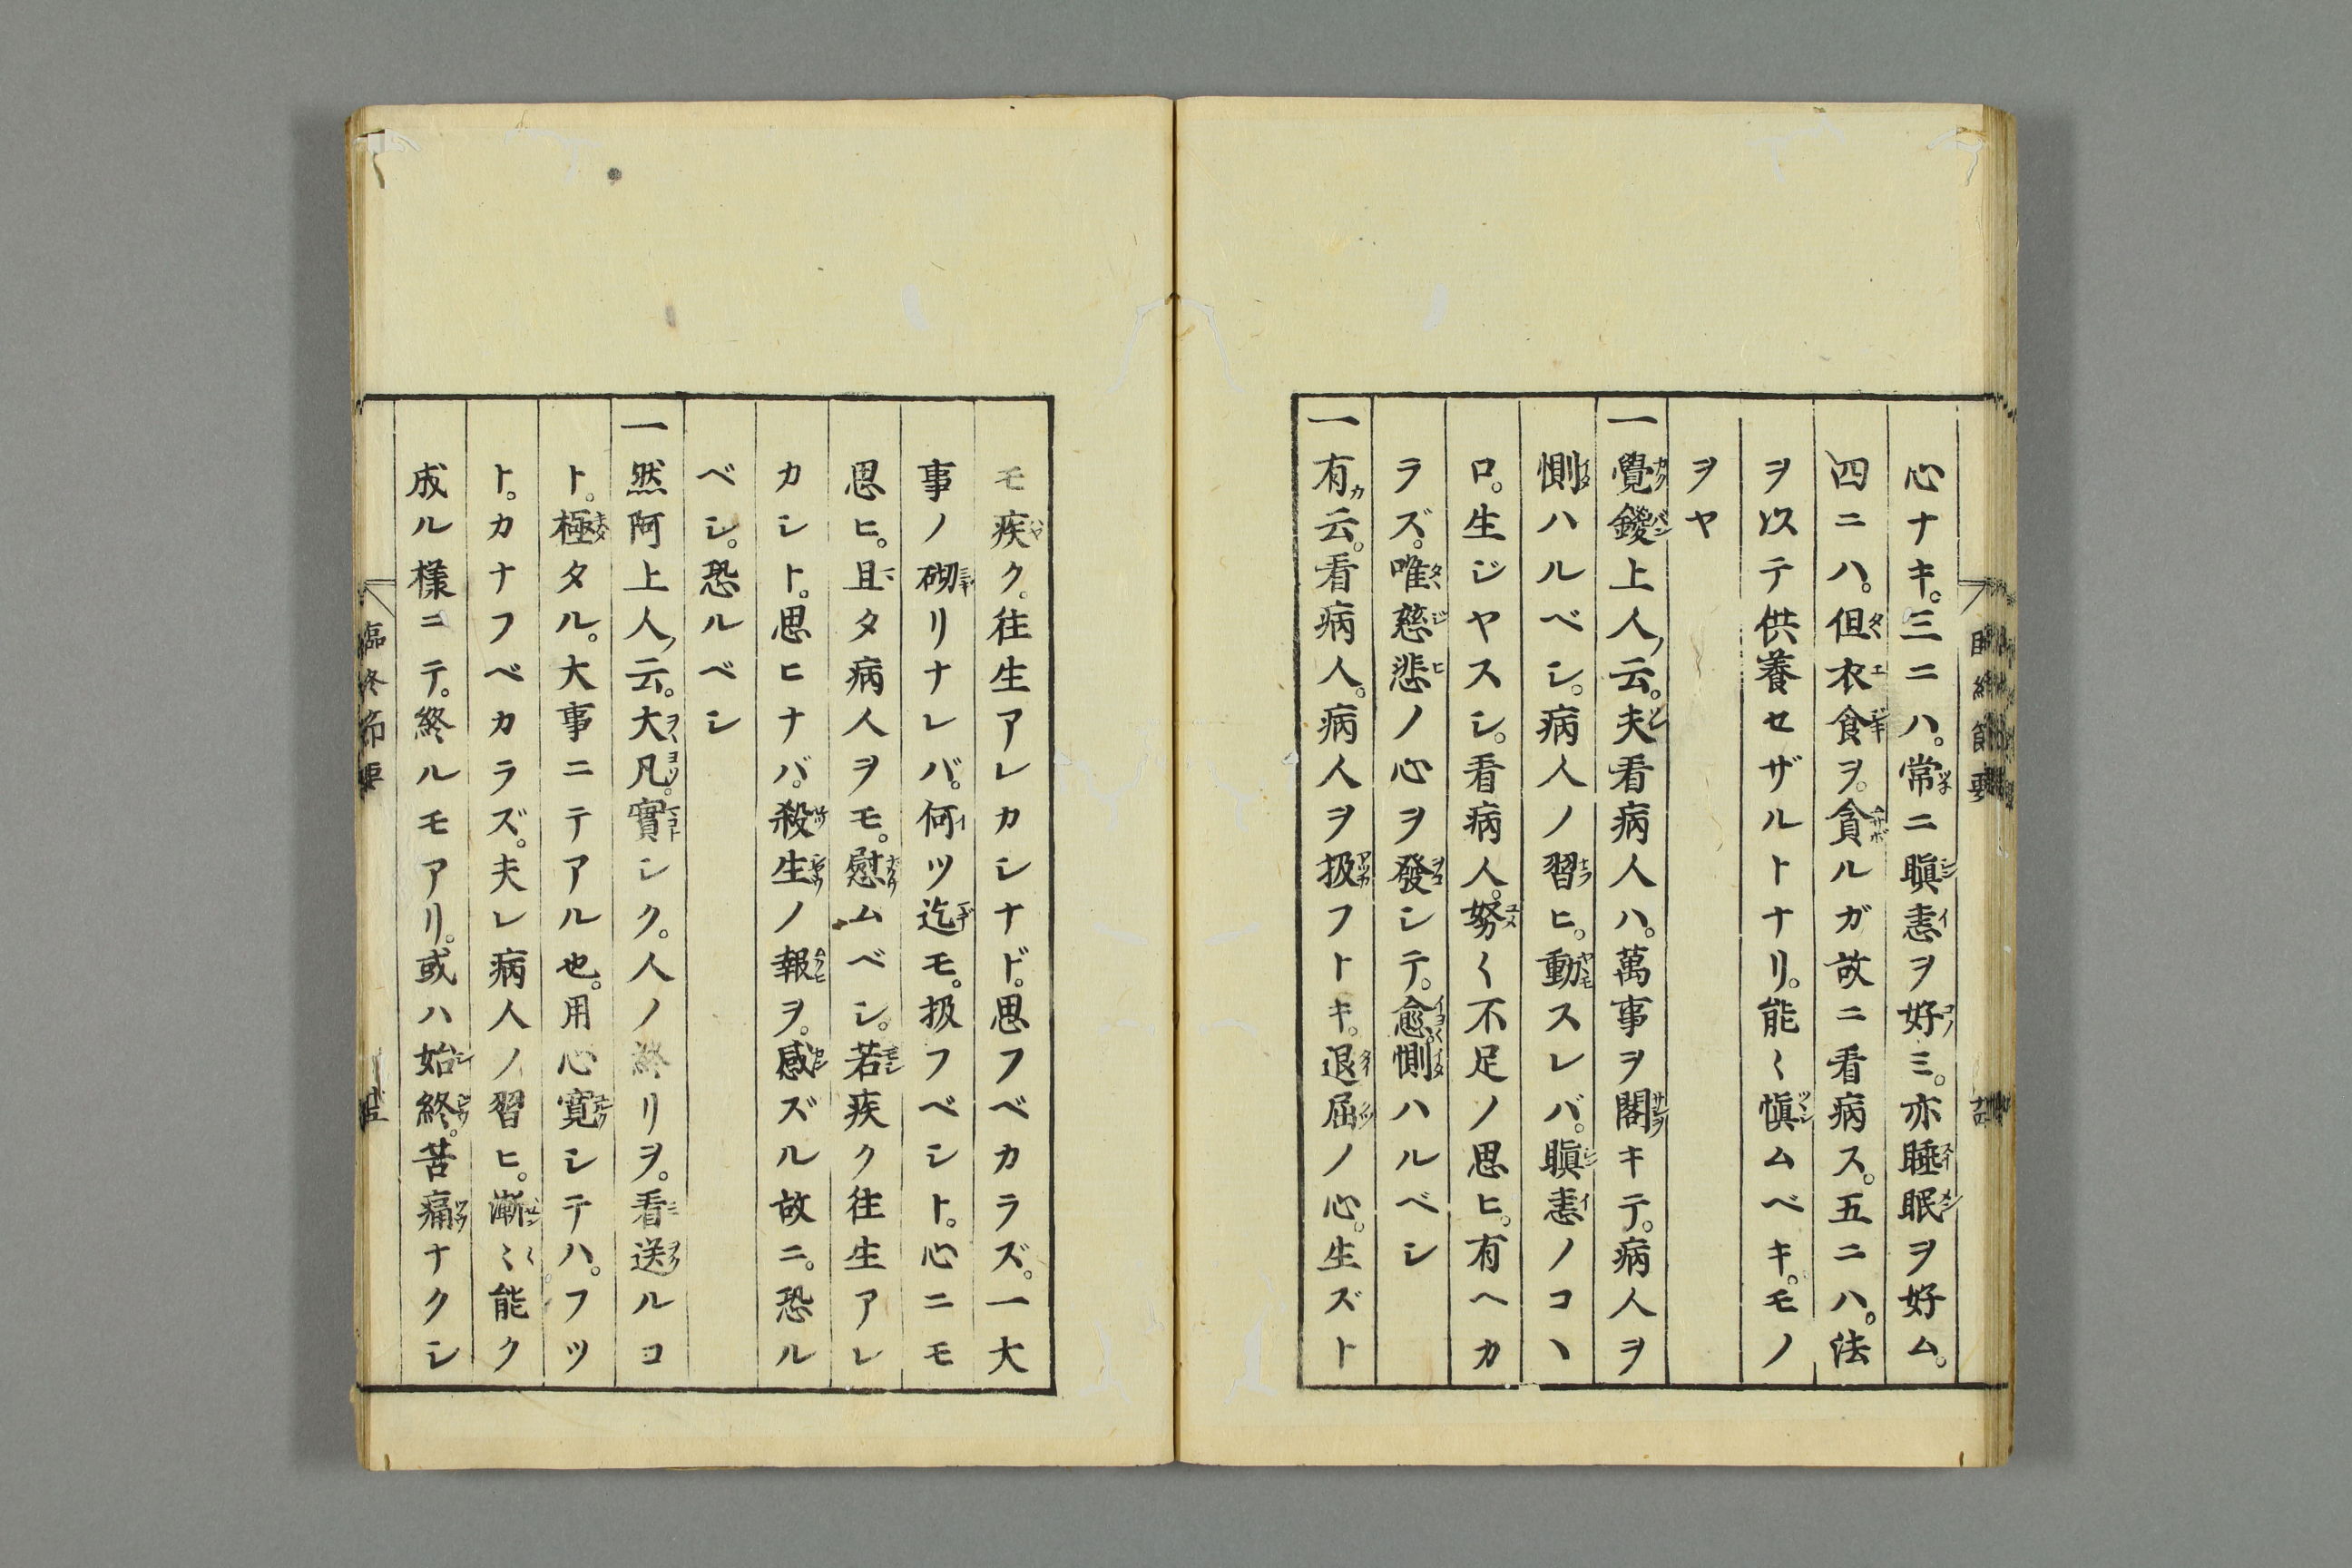 心ナキ。三ニハ。常ニ瞋恚ヲ好ミ。亦睡眠ヲ好ム。
四ニハ。但衣食ヲ。貪ルガ故ニ看病ス。五ニハ。法
ヲ以テ供養セザルトナリ。能〻愼ムベキ。モノ
ヲヤ
一覺鑁上人ノ云。夫看病人ハ。萬事ヲ閣キテ。病人ヲ
惻ハルベシ。病人ノ習ヒ。動スレバ。瞋恚ノコヽ
ロ。生ジヤスシ。看病人。努〱不足ノ思ヒ。有ヘカ
ラズ。唯慈悲ノ心ヲ發シテ。愈惻ハルベシ
一有云。看病人。病人ヲ扱フトキ。退屈ノ心。生ズト
モ疾ク。往生アレカシナド。思フベカラズ。一大
事ノ砌リナレバ。何ツ迄モ。扱フベシト。心ニモ
思ヒ。且タ病人ヲモ。慰ムベシ。若疾ク往生アレ
カシト。思ヒナバ。殺生ノ報ヲ。感ズル故ニ。恐ル
ベシ。恐ルベシ
一然阿上人ノ云。大凡。實シク。人ノ終リヲ。看送ルコ
ト。極タル。大事ニテアル也。用心寛シテハ。フツ
ト。カナフベカラズ。夫レ病人ノ習ヒ。漸〻能ク
成ル様ニテ。終ルモアリ。或ハ始終。苦痛ナクシ
臨終節要